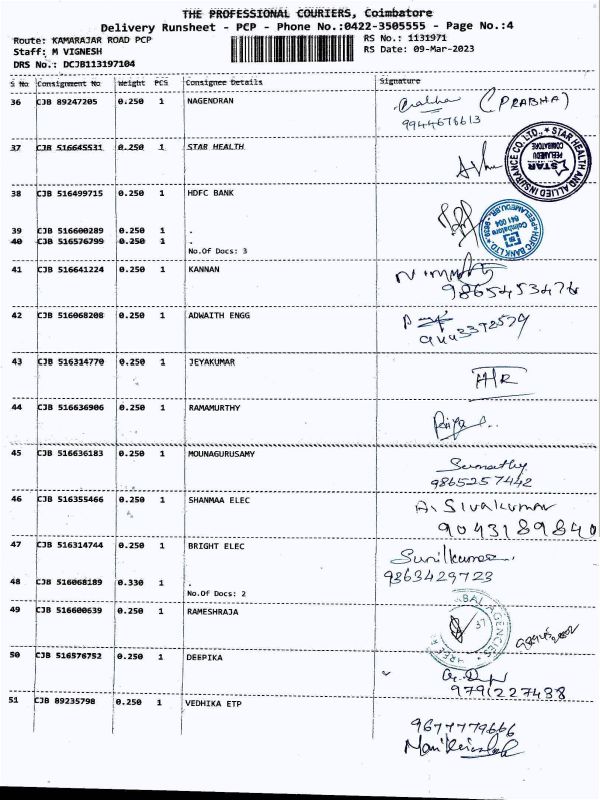 THE PROFESSIONAL COURIERS, Coimbatore
Delivery Runsheet - PCP - Phone No.:0422-3505555 - Page No.:4
Route: KAMARAJAR ROAD PCP RS No.: 1131971
Staff: M VIGNESH RS Date: 09-Mar-2023
DRS No.: DCJB113197104
S No Consignment No Weight PCS Consignee Details Signature
36 CJB 89247205 0.250 1 NAGENDRAN Prabha (PRABHA)
9944676613
37 CJB 516645531 0.250 1 STAR HEALTH
STAR HEALTH AND ALLIED INSURANCE CO. LTD., STAR PEELAMEDU COIMBATORE
38 CJB 516499715 0.250 1 HDFC BANK
HDFC BANK LTD. Coimbatore 641 004
39 CJB 516600289 0.250 1 .
40 CJB 516576799 0.250 1 .
No.Of Docs: 3
41 CJB 516641224 0.250 1 KANNAN
9865453476
42 CJB 516068208 0.250 1 ADWAITH ENGG
43 CJB 516314770 0.250 1 JEYAKUMAR
44 CJB 516636906 0.250 1 RAMAMURTHY
45 CJB 516636183 0.250 1 MOUNAGURUSAMY Sumathy
9865257442
46 CJB 516355466 0.250 1 SHANMAA ELEC A. Sivakumar
9043189840
47 CJB 516314744 0.250 1 BRIGHT ELEC Sunilkumar
9863429723
48 CJB 516068189 0.330 1 .
No.Of Docs: 2
49 CJB 516600639 0.250 1 RAMESHRAJA
BALAGENCIES
37
50 CJB 516576752 0.250 1 DEEPIKA
9791227438
51 CJB 89235798 0.250 1 VEDHIKA ETP
9677779666